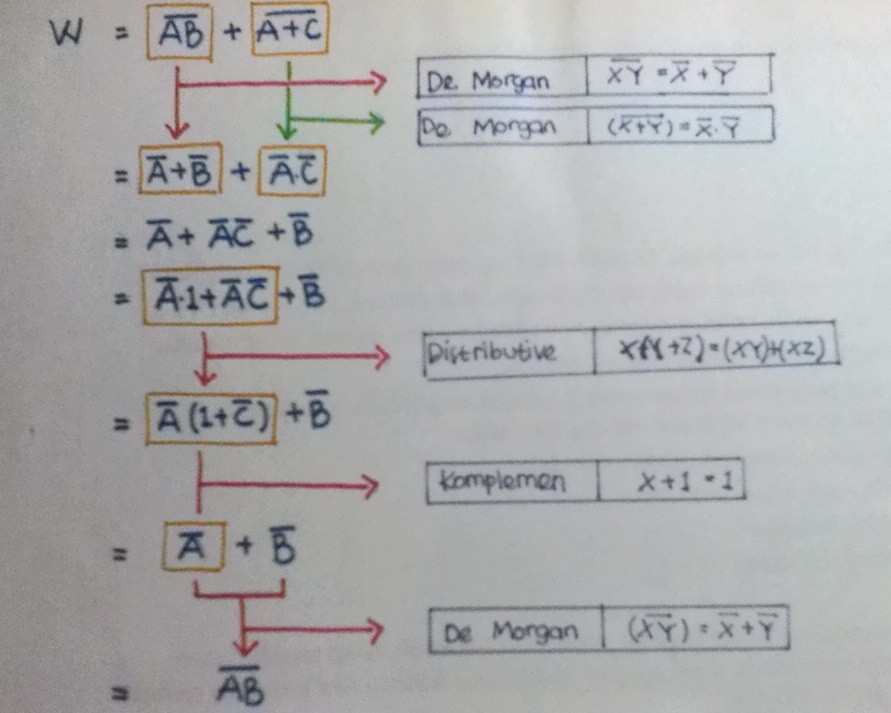 W = A̅B̅ + A̅+̅C̅
De Morgan X̅Y̅ = X̅ + Y̅
De Morgan (X̅+̅Y̅) = X̅.Y̅
= A̅+B̅ + A̅.C̅
= A̅ + A̅C̅ + B̅
= A̅.1 + A̅C̅ + B̅
Distributive X(Y+Z) = (XY)+(XZ)
= A̅(1+C̅) + B̅
Komplemen X+1 = 1
= A̅ + B̅
De Morgan (X̅Y̅) = X̅+Y̅
= A̅B̅